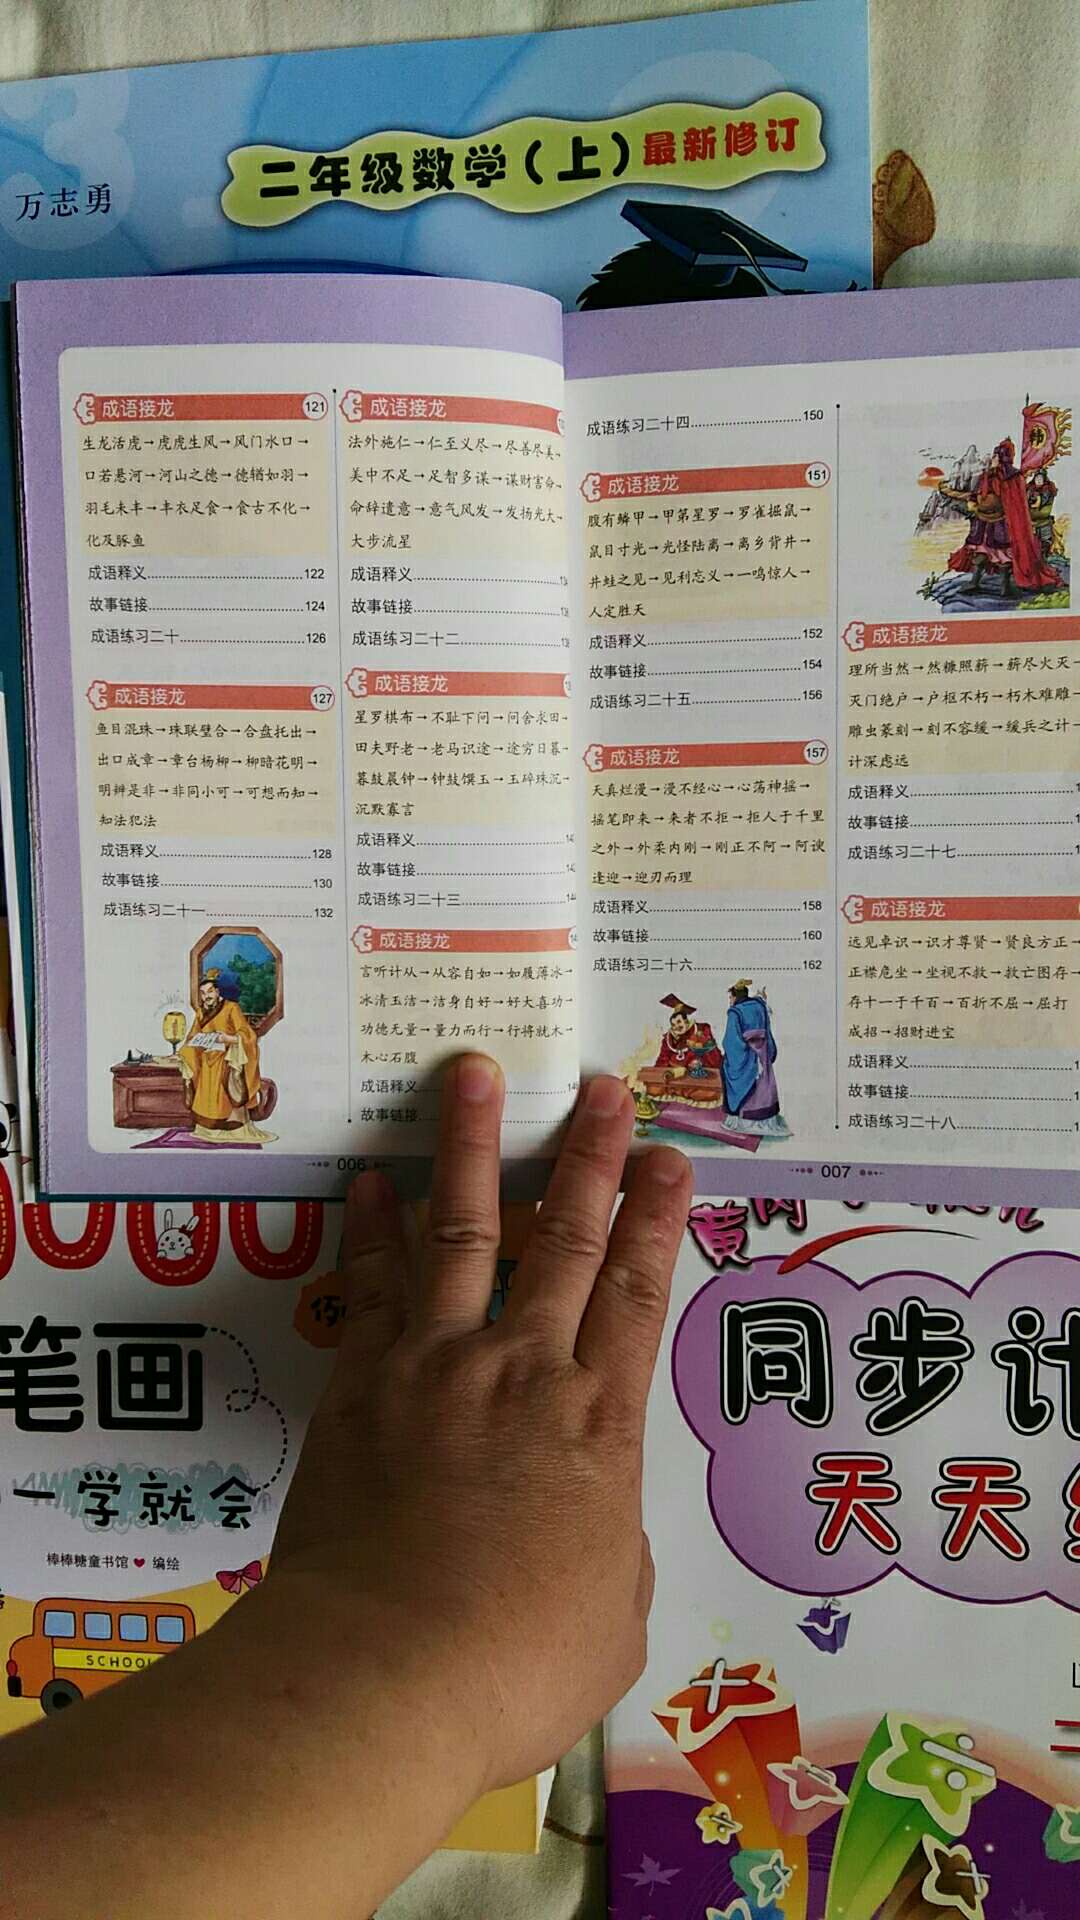 二年级数学(上)最新修订
万志勇
成语接龙 121
生龙活虎→虎虎生风→风门水口→
口若悬河→河山之德→德犹如羽→
羽毛未丰→丰衣足食→食古不化→
化及豚鱼
成语释义 122
故事链接 124
成语练习二十 126
成语接龙 127
鱼目混珠→珠联璧合→合盘托出→
出口成章→章台杨柳→柳暗花明→
明辨是非→非同小可→可想而知→
知法犯法
成语释义 128
故事链接 130
成语练习二十一 132
成语接龙
法外施仁→仁至义尽→尽善尽美→
美中不足→足智多谋→谋财害命→
命辞遣意→意气风发→发扬光大→
大步流星
成语释义
故事链接
成语练习二十二
成语接龙
星罗棋布→不耻下问→问舍求田→
田夫野老→老马识途→途穷日暮→
暮鼓晨钟→钟鼓馔玉→玉碎珠沉→
沉默寡言
成语释义
故事链接
成语练习二十三
成语接龙
言听计从→从容自如→如履薄冰→
冰清玉洁→洁身自好→好大喜功→
功德无量→量力而行→行将就木→
木心石腹
成语释义
故事链接
006
成语练习二十四 150
成语接龙 151
腹有鳞甲→甲第星罗→罗雀掘鼠→
鼠目寸光→光怪陆离→离乡背井→
井蛙之见→见利忘义→一鸣惊人→
人定胜天
成语释义 152
故事链接 154
成语练习二十五 156
成语接龙 157
天真烂漫→漫不经心→心荡神摇→
摇笔即来→来者不拒→拒人于千里
之外→外柔内刚→刚正不阿→阿谀
逢迎→迎刃而理
成语释义 158
故事链接 160
成语练习二十六 162
成语接龙
理所当然→然糠照薪→薪尽火灭→
灭门绝户→户枢不朽→朽木难雕→
雕虫篆刻→刻不容缓→缓兵之计→
计深虑远
成语释义
故事链接
成语练习二十七
成语接龙
远见卓识→识才尊贤→贤良方正→
正襟危坐→坐视不救→救亡图存→
存十一于千百→百折不屈→屈打
成招→招财进宝
成语释义
故事链接
成语练习二十八
007
笔画
一学就会
棒棒糖童书馆 编绘
SCHOOL
黄
同步计
天天